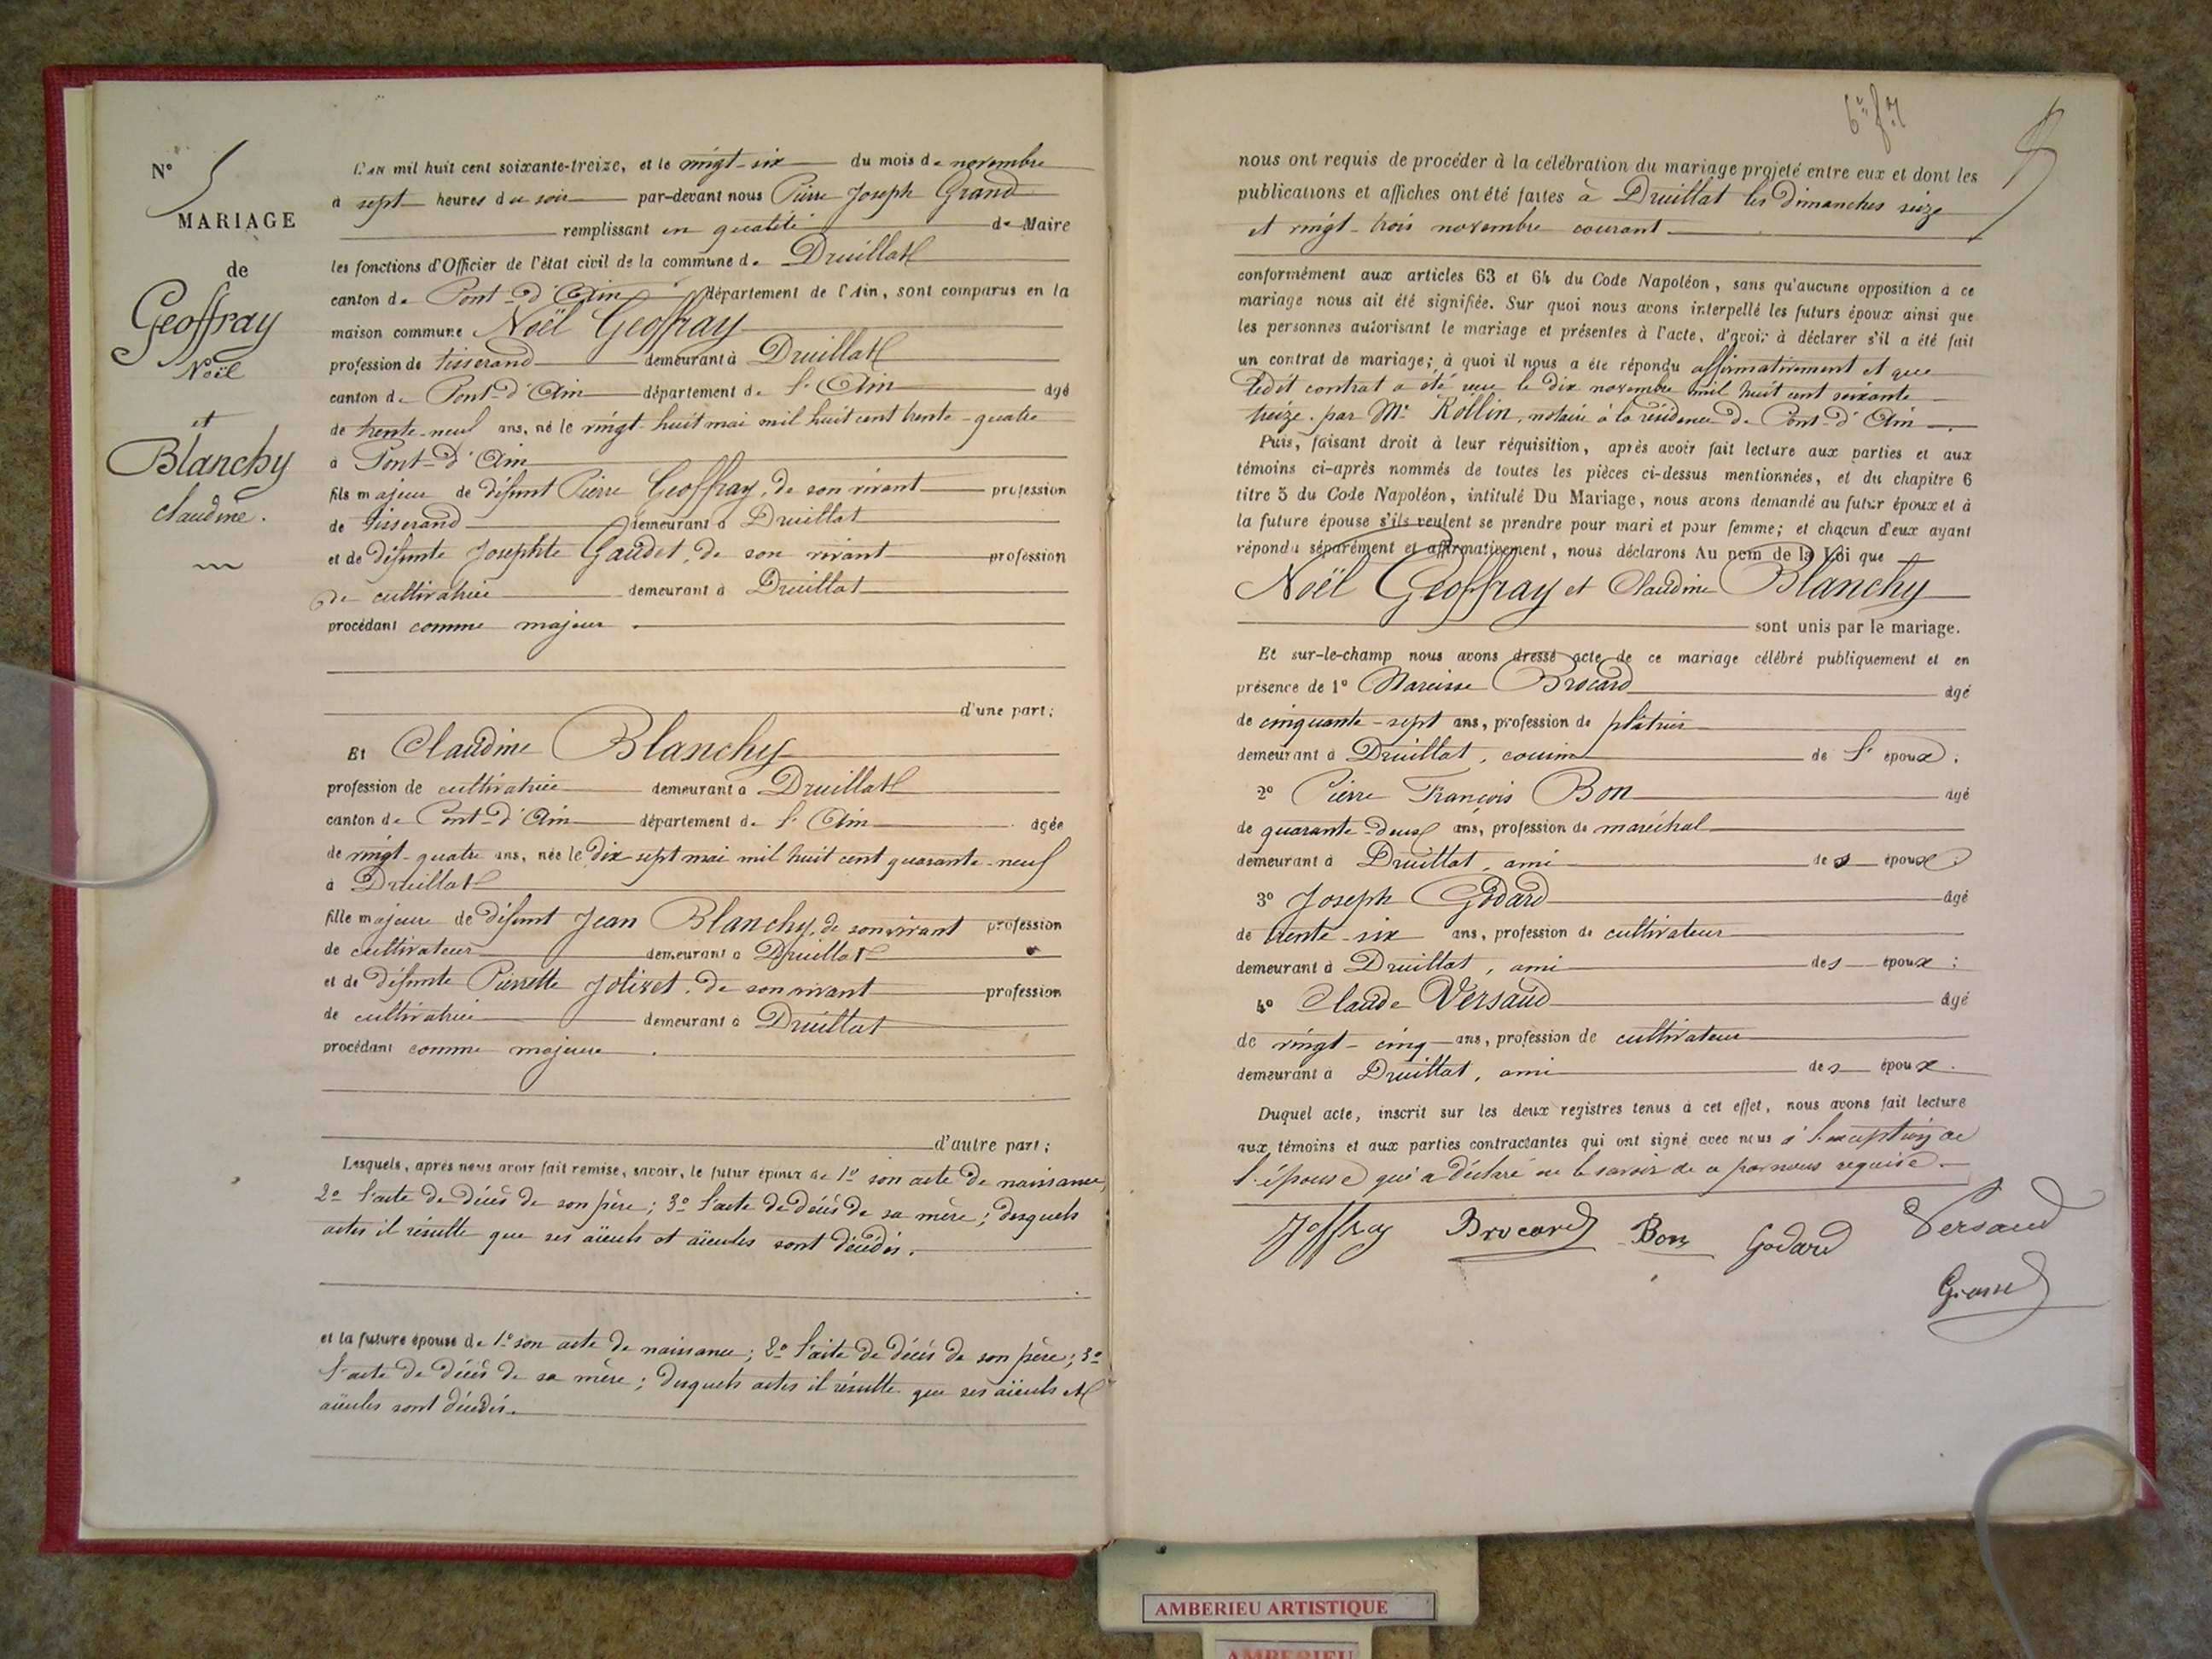 N° 5
MARIAGE
de
Geoffray
Noël
et
Blanchy
Claudine.
L'AN mil huit cent soixante-treize, et le vingt-six du mois de novembre
à sept heures du soir par-devant nous Pierre Joseph Grand
remplissant en qualité de Maire
les fonctions d'Officier de l'état civil de la commune de Druillat
canton de Pont-d'Ain département de l'Ain, sont comparus en la
maison commune Noël Geoffray
profession de tisserand demeurant à Druillat
canton de Pont-d'Ain département de l'Ain âgé
de trente-neuf ans, né le vingt-huit mai mil huit cent trente-quatre
à Pont-d'Ain
fils majeur de défunt Pierre Geoffray, de son vivant profession
de tisserand demeurant à Druillat
et de défunte Josephte Gaudet, de son vivant profession
de cultivatrice demeurant à Druillat
procédant comme majeur.
d'une part;
Et Claudine Blanchy
profession de cultivatrice demeurant à Druillat
canton de Pont-d'Ain département de l'Ain âgée
de vingt-quatre ans, née le dix-sept mai mil huit cent quarante-neuf
à Druillat
fille majeure de défunt Jean Blanchy, de son vivant profession
de cultivateur demeurant à Druillat
et de défunte Pierrette Jolivet, de son vivant profession
de cultivatrice demeurant à Druillat
procédant comme majeure.
d'autre part;
Lesquels, après nous avoir fait remise, savoir, le futur époux de 1° son acte de naissance,
2° l'acte de décès de son père; 3° l'acte de décès de sa mère; desquels
actes il résulte que ses aïeuls et aïeules sont décédés.
et la future épouse de 1° son acte de naissance; 2° l'acte de décès de son père; 3°
l'acte de décès de sa mère; desquels actes il résulte que ses aïeuls et
aïeules sont décédés.
5
nous ont requis de procéder à la célébration du mariage projeté entre eux et dont les
publications et affiches ont été faites à Druillat les dimanches seize
et vingt-trois novembre courant.
conformément aux articles 63 et 64 du Code Napoléon, sans qu'aucune opposition à ce
mariage nous ait été signifiée. Sur quoi nous avons interpellé les futurs époux ainsi que
les personnes autorisant le mariage et présentes à l'acte, d'avoir à déclarer s'il a été fait
un contrat de mariage; à quoi il nous a été répondu affirmativement et que
ledit contrat a été reçu le dix novembre mil huit cent soixante
treize par Me Rollin, notaire à la résidence de Pont-d'Ain.
Puis, faisant droit à leur réquisition, après avoir fait lecture aux parties et aux
témoins ci-après nommés de toutes les pièces ci-dessus mentionnées, et du chapitre 6
titre 5 du Code Napoléon, intitulé Du Mariage, nous avons demandé au futur époux et à
la future épouse s'ils veulent se prendre pour mari et pour femme; et chacun d'eux ayant
répondu séparément et affirmativement, nous déclarons Au nom de la Loi que
Noël Geoffray et Claudine Blanchy
sont unis par le mariage.
Et sur-le-champ nous avons dressé acte de ce mariage célébré publiquement et en
présence de 1° Narcisse Brocard âgé
de cinquante-sept ans, profession de plâtrier
demeurant à Druillat, cousin de l'époux;
2° Pierre François Bon âgé
de quarante-deux ans, profession de maréchal
demeurant à Druillat, ami des époux;
3° Joseph Godard âgé
de trente-six ans, profession de cultivateur
demeurant à Druillat, ami des époux;
4° Claude Versaud âgé
de vingt-cinq ans, profession de cultivateur
demeurant à Druillat, ami des époux.
Duquel acte, inscrit sur les deux registres tenus à cet effet, nous avons fait lecture
aux témoins et aux parties contractantes qui ont signé avec nous à l'exception de
l'épouse qui a déclaré ne le savoir de ce par nous requise.
Joffray Brocard Bon Godard Versaud
Grand
AMBERIEU ARTISTIQUE
AMBERIEU